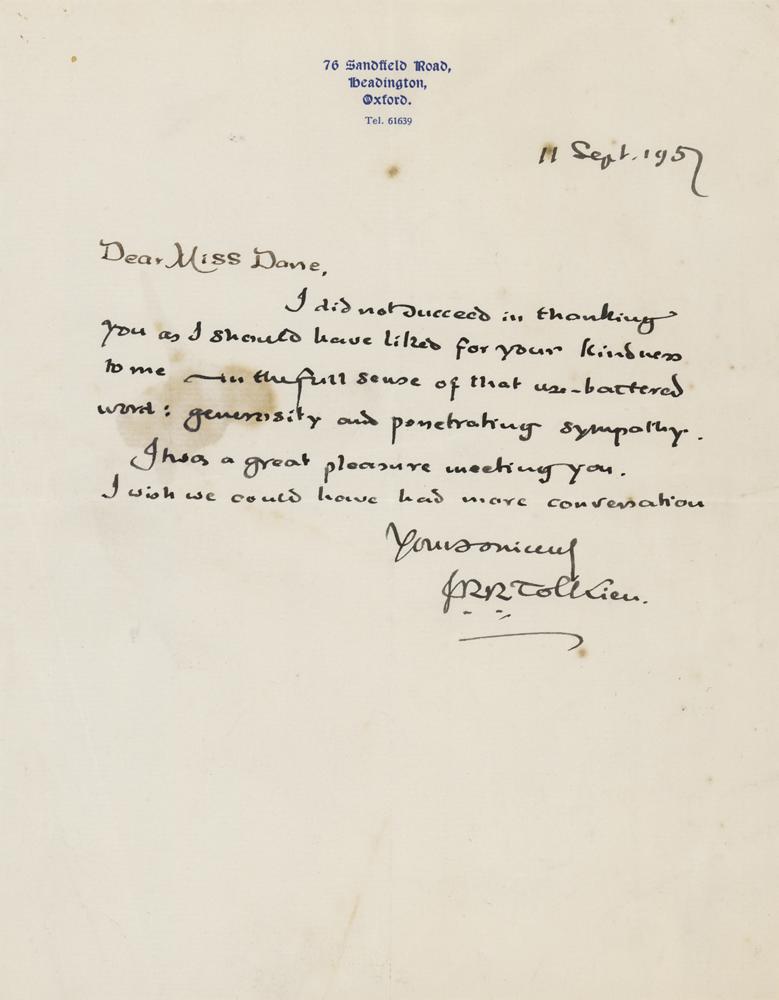 76 Sandfield Road,
Headington,
Oxford.
Tel. 61639
11 Sept. 1957
Dear Miss Dane,
I did not succeed in thanking
you as I should have liked for your kindness
to me — in the full sense of that use-battered
word: generosity and penetrating sympathy.
It was a great pleasure meeting you.
I wish we could have had more conversation
Yours sincerely
JRRTolkien.